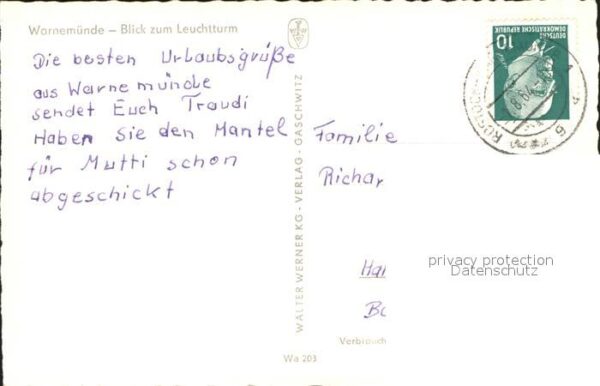 Warnemünde – Blick zum Leuchtturm
Die besten Urlaubsgrüße
aus Warnemünde
sendet Euch Traudi
Haben Sie den Mantel
für Mutti schon
abgeschickt
WALTER WERNER KG - VERLAG - GASCHWITZ
10
DEUTSCHE
DEMOKRATISCHE REPUBLIK
Familie
Richar
Har
Bo
privacy protection
Datenschutz
Verbrauch
Wa 203